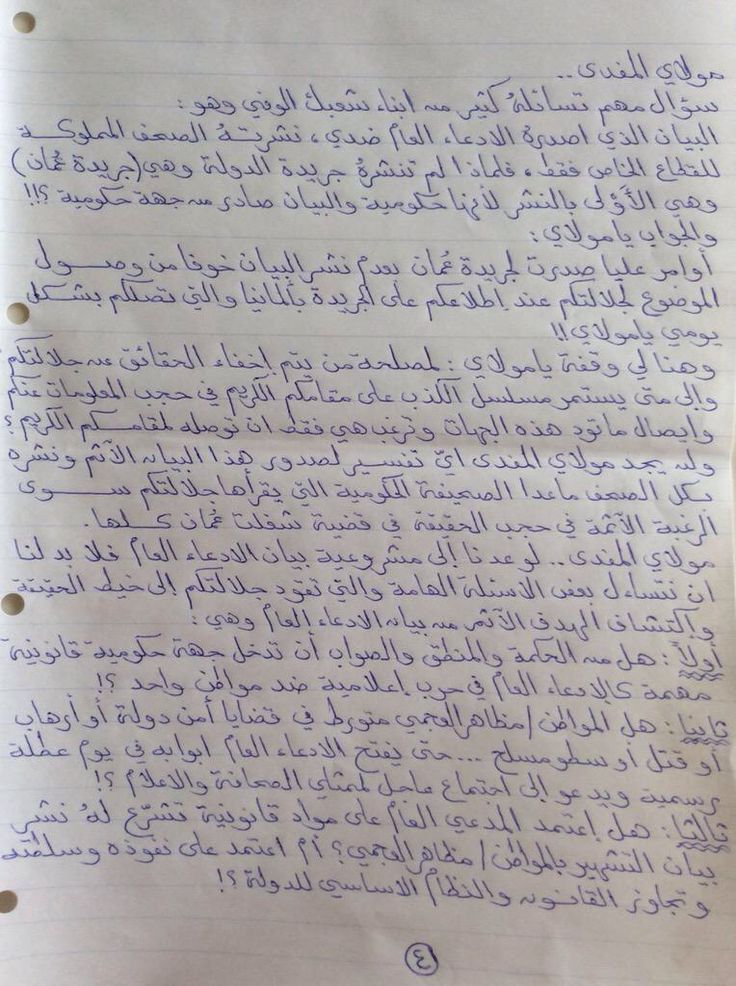 مولاي المفدى ..
سؤال مهم تسائلهُ كثير من ابناء شعبك الوفي وهو :
البيان الذي اصدرهُ الادعاء العام ضدي ، نشرتهُ الصحف المملوكة
للقطاع الخاص فقط ، فلماذا لم تنشرهُ جريدة الدولة وهي (جريدة عُمان)
وهي الأَوْلى بالنشر لأنها حكومية والبيان صادر من جهة حكومية ؟!!
والجواب يا مولاي :
أوامر عليا صدرت لجريدة عُمان بعدم نشر البيان خوفا من وصول
الموضوع لجلالتكم عند إطلاعكم على الجريدة بألمانيا والتي تصلكم بشكل
يومي يا مولاي !!
وهنا لي وقفة يا مولاي : لمصلحة من يتم إخفاء الحقائق عن جلالتكم
وإلى متى يستمر مسلسل الكذب على مقامكم الكريم في حجب المعلومات عنكم
وإيصال ما تود هذه الجهات وترغب هي فقط ان توصله لمقامكم الكريم ؟
ولن يجد مولاي المفدى ايّ تفسير لصدور هذا البيان الآثم ونشره
بكل الصحف ماعدا الصحيفة الحكومية التي يقرأها جلالتكم سوى
الرغبة الآثمة في حجب الحقيقة في قضية شغلت عُمان كلها.
مولاي المفدى .. لو عدنا إلى مشروعية بيان الادعاء العام فلا بد لنا
ان نتساءل بعض الاسئلة الهامة والتي تقود جلالتكم إلى خيط الحقيقة
وإكتشاف الهدف الآثم من بيان الادعاء العام وهي :
أولاً : هل من الحكمة والمنطق والصواب أن تدخل جهة حكومية "قانونية"
مهمة كالإدعاء العام في حرب إعلامية ضد مواطن واحد ؟!
ثانيا : هل المواطن / مظاهر العجمي متورط في قضايا أمن دولة أو أرهاب
أو قتل أو سطو مسلح ... حتى يفتح الادعاء العام ابوابه في يوم عطلة
رسمية ويدعو إلى اجتماع عاجل لممثلي الصحافة والاعلام ؟!
ثالثا : هل إعتمد المدعي العام على مواد قانونية تشرّع لهُ نشر
بيان التشهير بالمواطن / مظاهر العجمي ؟ أم اعتمد على نفوذه وسلطته
وتجاوز القانون والنظام الاساسي للدولة ؟!
٤